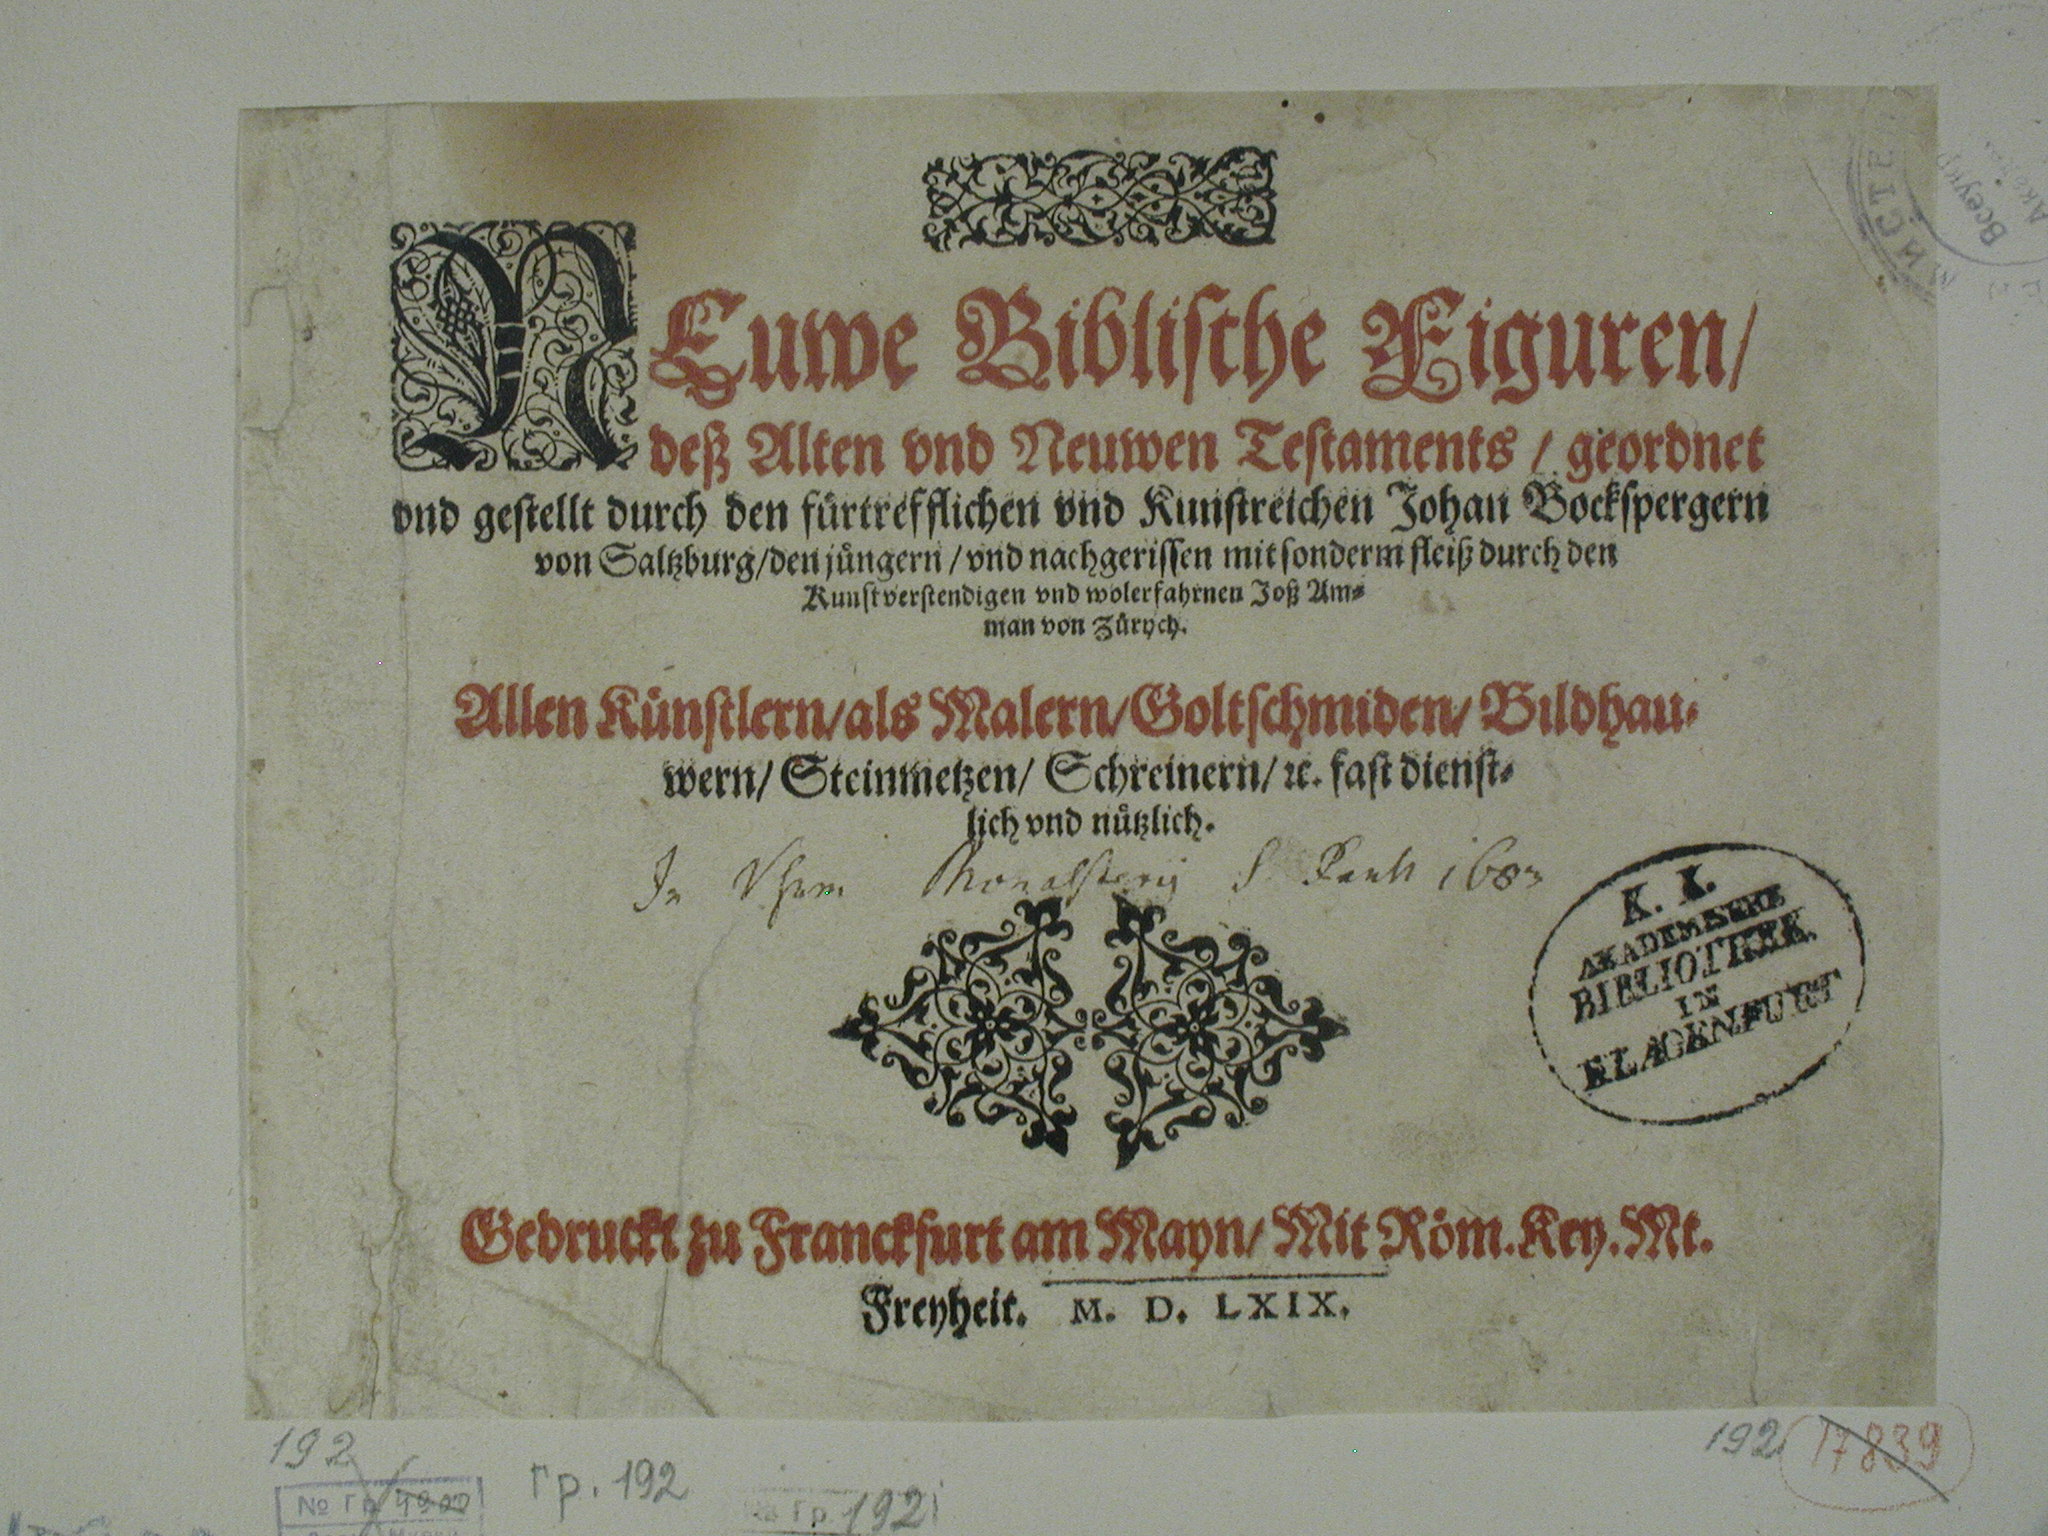 NEuwe Biblische Figuren/
deß Alten vnd Neuwen Testaments / geordnet
vnd gestellt durch den fürtrefflichen vnd Kunstreichen Johan Bockspergern
von Saltzburg/den jüngern/vnd nachgerissen mit sonderm fleiß durch den
Kunstverstendigen vnd wolerfahrnen Joß Am=
man von Zürych.
Allen Künstlern/als Malern/Goltschmiden/Bildhau=
wern/ Steinmetzen/ Schreinern/ ꝛc. fast dienst=
lich vnd nützlich.
In Monasterij S. Pauli
K. K.
AKADEMISCHE
BIBLIOTHEK
IN
KLAGENFURT
Gedruckt zu Franckfurt am Mayn/ Mit Röm. Key. Mt.
Freyheit. M. D. LXIX.
192
192 17839
№ Гр.
Гр. 192
Гр. 192